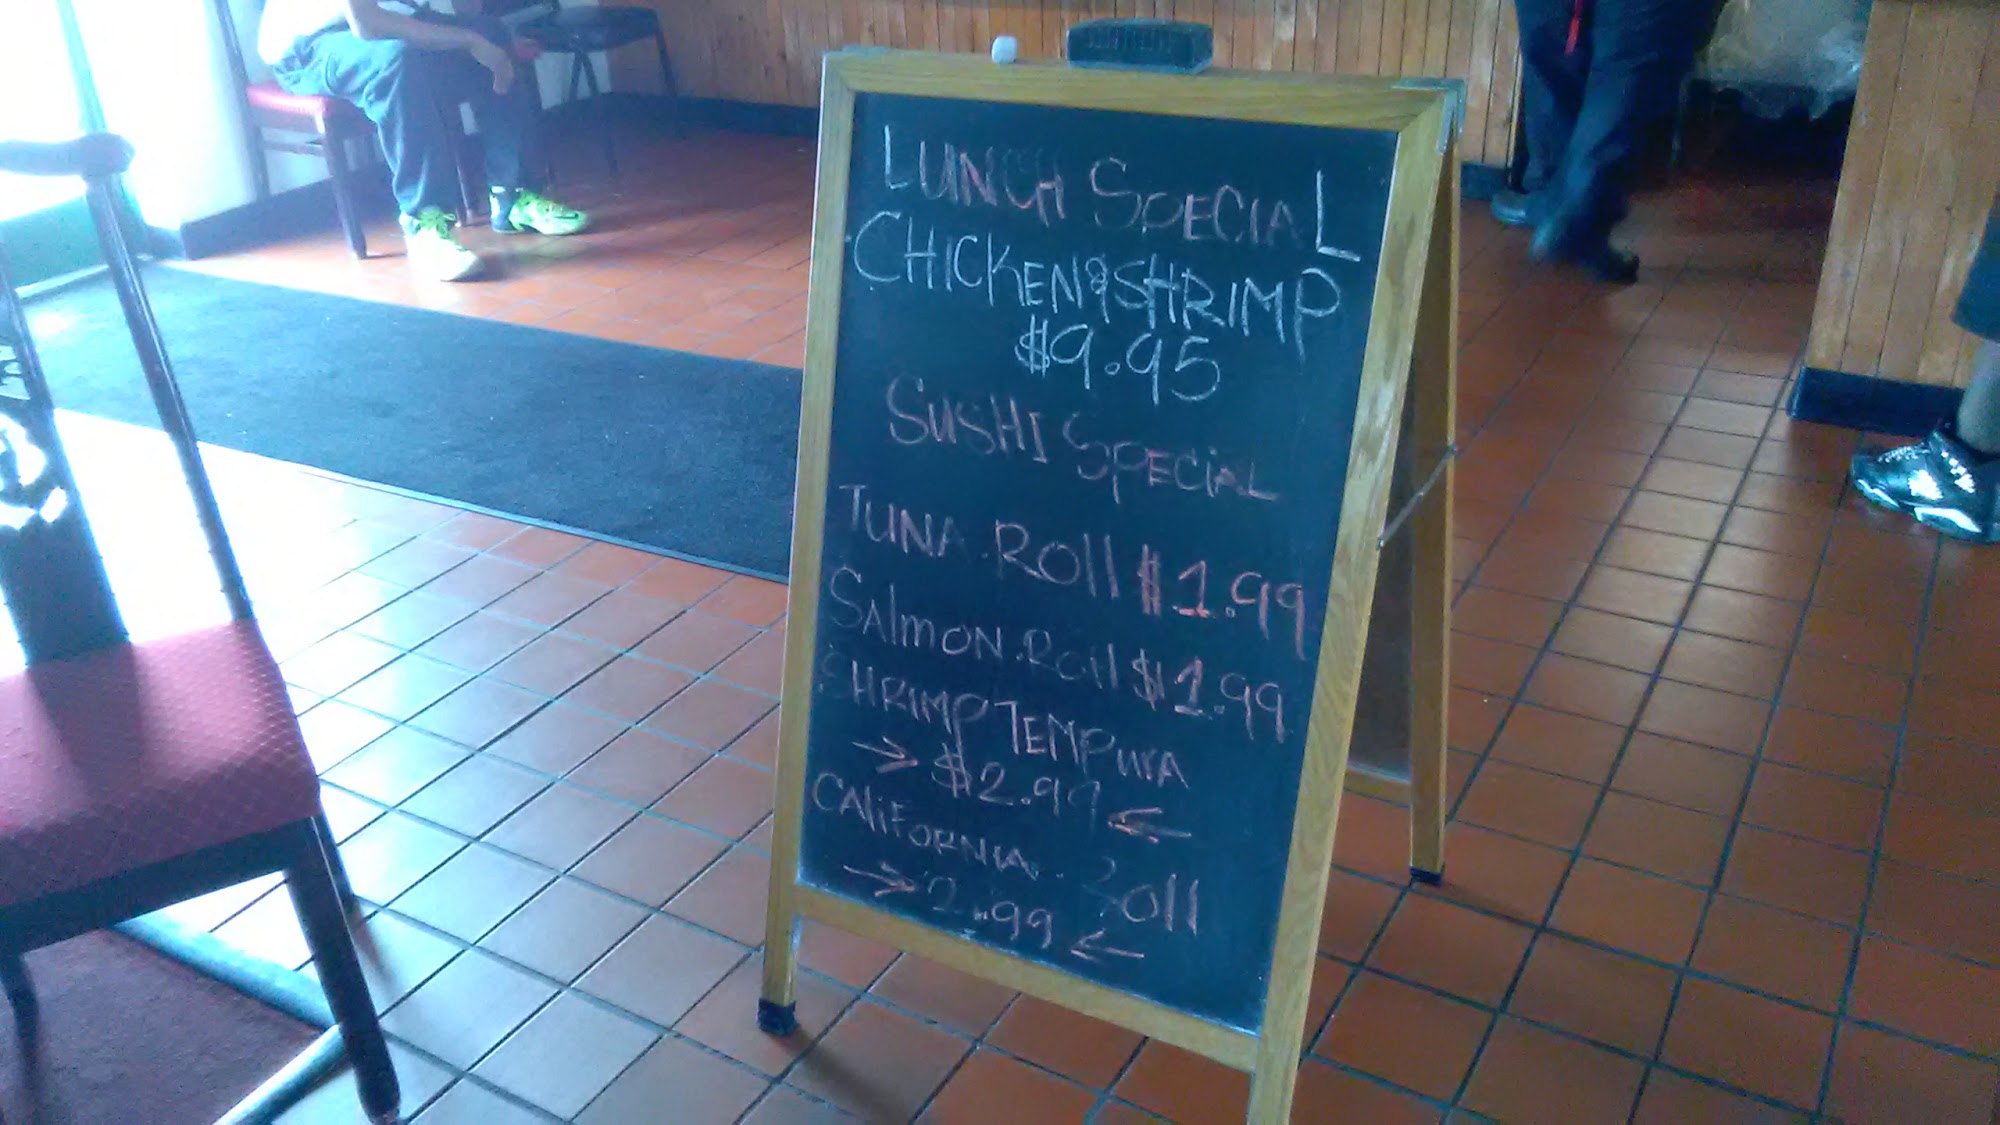 LUNCH SPECIAL
CHICKEN & SHRIMP
$9.95
SUSHI SPECIAL
TUNA. Roll $1.99
SAlmON. Roll $1.99
SHRIMP TEMPURA
→ $2.99 ←
CALIFORNIA. Roll
→ 2.99 ←